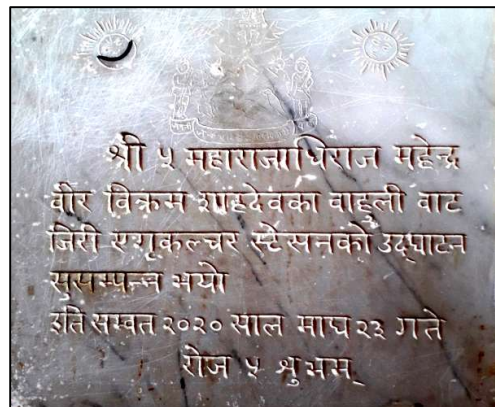 श्री ५ महाराजाधिराज महेन्द्र
वीर विक्रम शाहदेवका वाहुली वाट
जिरी एग्रीकल्चर स्टेसनको उद्घाटन
सुसम्पन्न भयो
इति सम्वत २०२० साल माघ २३ गते
रोज ५ शुभम्